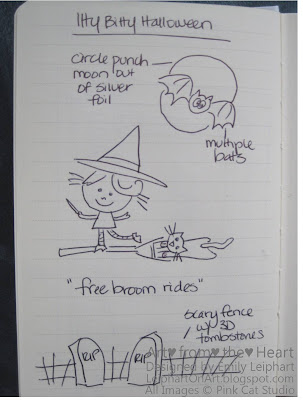 Itty Bitty Halloween
circle punch
moon out
of silver
foil
multiple
bats
"free broom rides"
scary fence
w/ 3D
tombstones
RIP
RIP
Art ♥ from ♥ the ♥ Heart
Designed by Emily Leiphart
LeiphartOfArt.blogspot.com
All Images © Pink Cat Studio